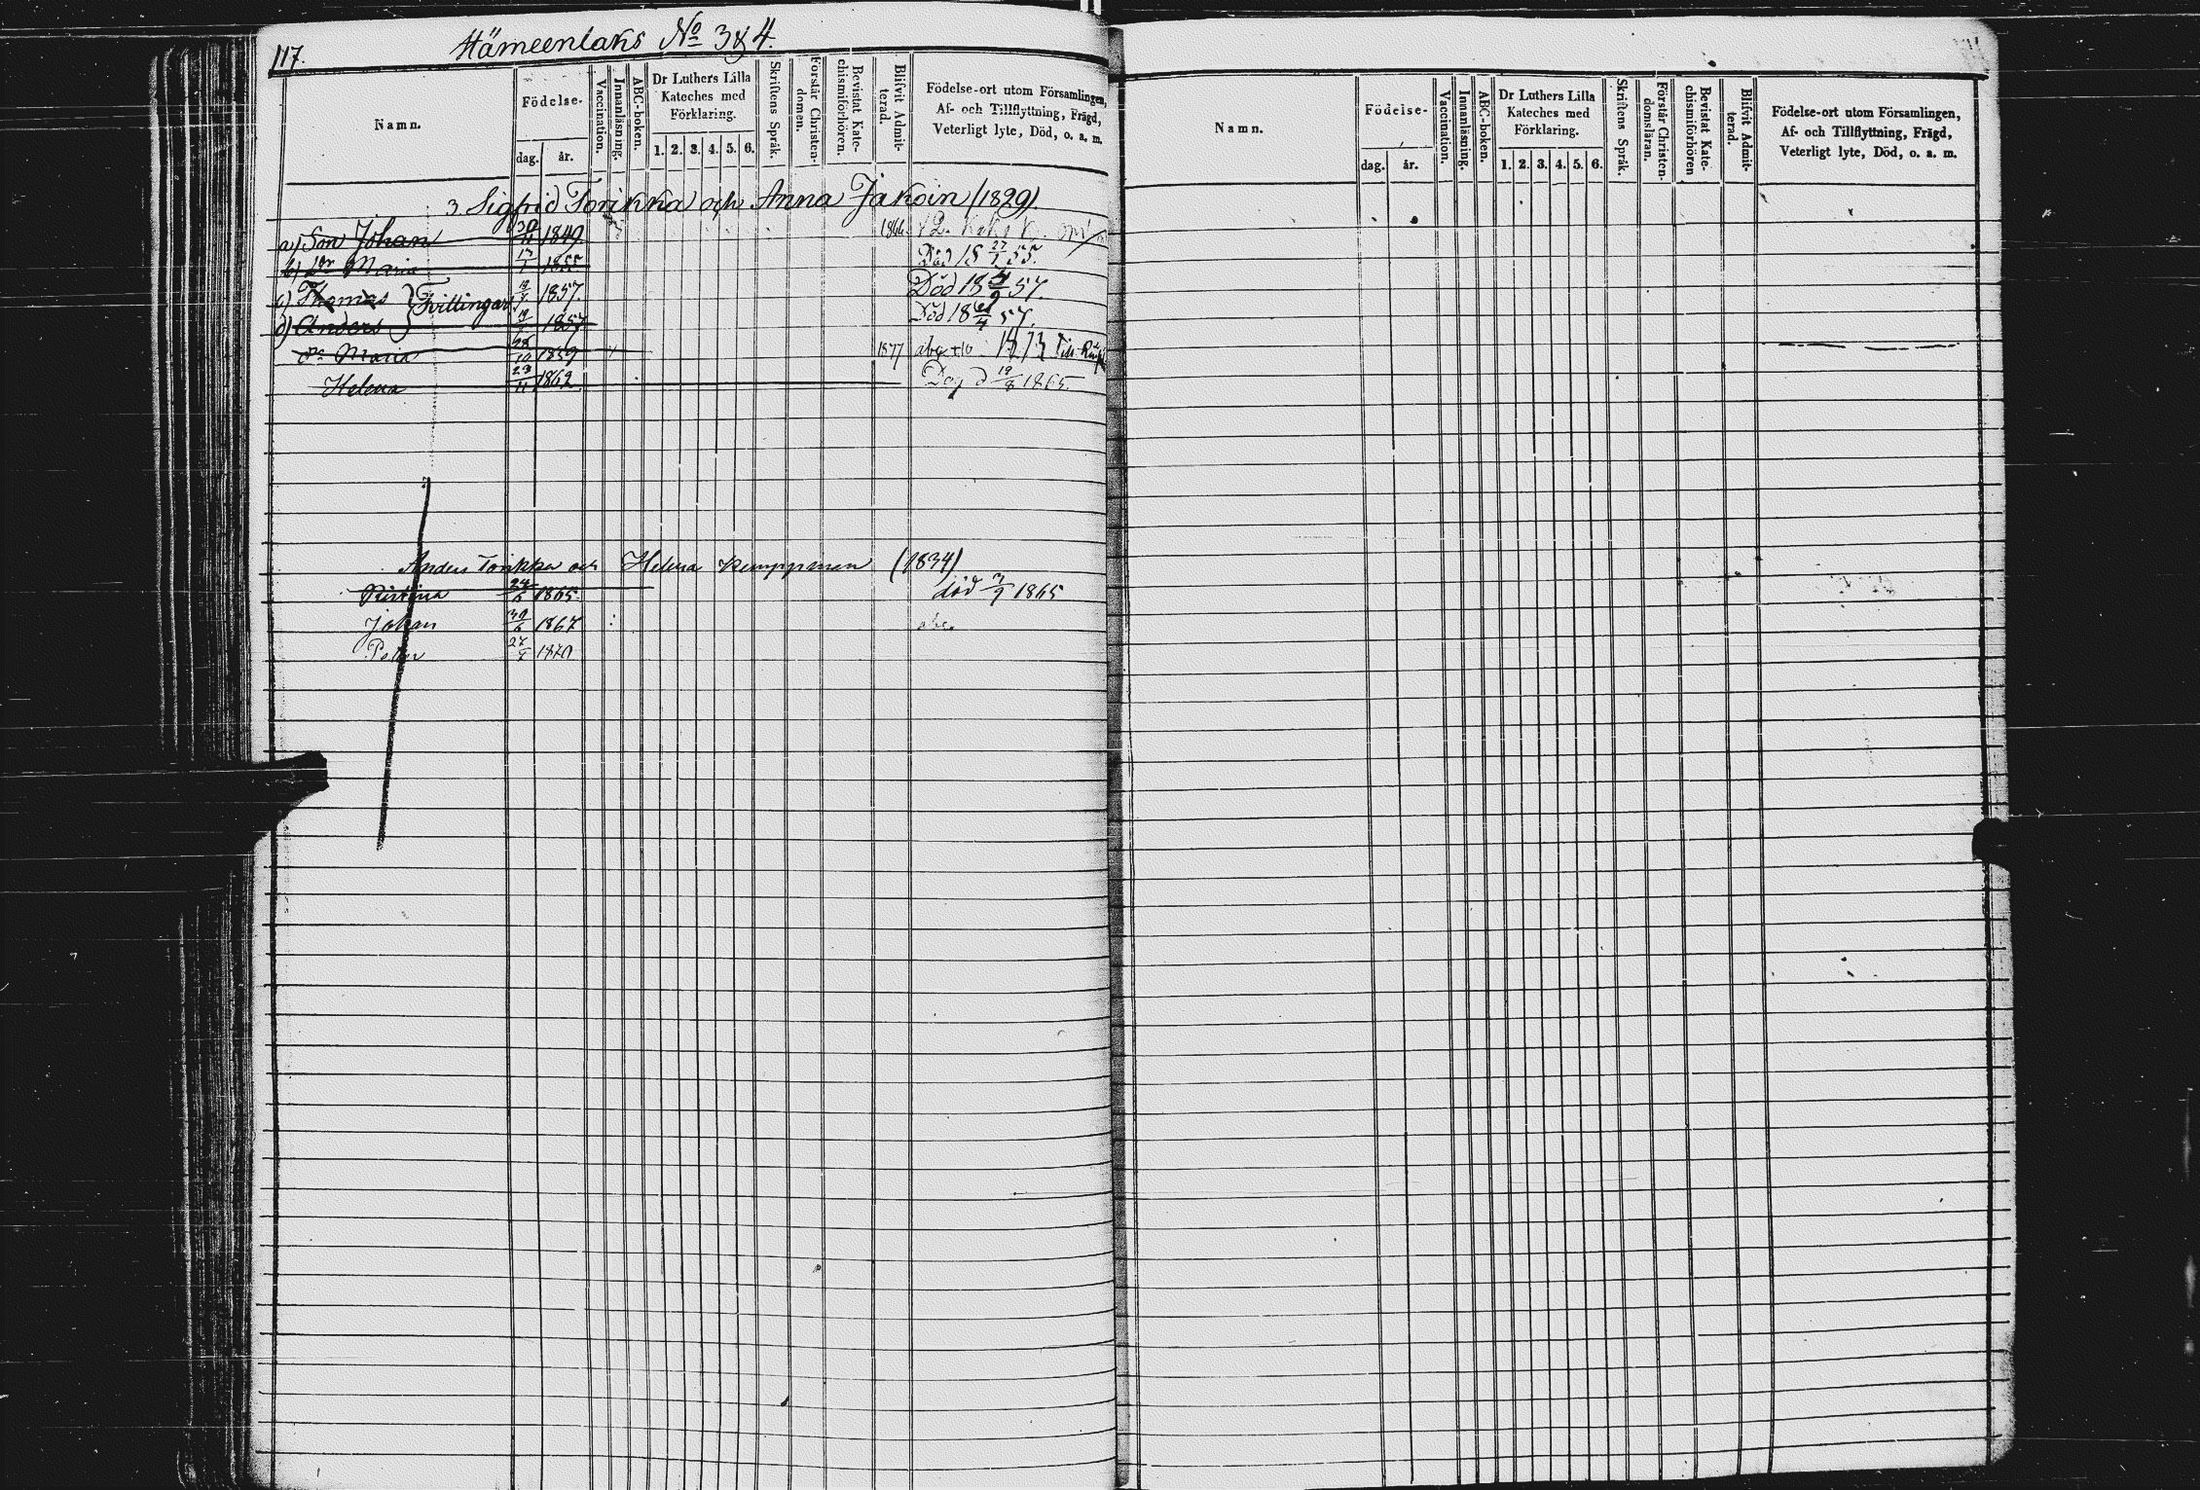 117.
Hämeenlaks No 3 & 4.
Namn.
Födelse-
dag. år.
Vaccination.
Innanläsning.
ABC-boken.
Dr Luthers Lilla Kateches med Förklaring.
1. 2. 3. 4. 5. 6.
Skriftens Språk.
Förstår Christendomen.
Bevistat Katechismiförhören.
Blifvit Admitterad.
Födelse-ort utom Församlingen, Af- och Tillflyttning, Frägd, Veterligt lyte, Död, o. a. m.
3 Sigfrid Torikka och Anna Jakoin (1829)
a) Son Johan 30/11 1849 1866
b) Dr Maria 17/1 1855 Död 18 27/1 55.
c) Thomas } Tvillingar 1857. Död 18 4/9 57.
d) Anders 1857 Död 18 57.
Dr Maria 28/10 1859 1877 abc
Helena 23/11 1862 Död d 19/8 1865.
Anders Torikka och Helena Kemppinen (1834)
Kristina 24/6 1865. död 3/9 1865
Johan 30/6 1867 abc.
Petter 27/9 1870
Namn.
Födelse-
dag. år.
Vaccination.
Innanläsning.
ABC-boken.
Dr Luthers Lilla Kateches med Förklaring.
1. 2. 3. 4. 5. 6.
Skriftens Språk.
Förstår Christendomsläran.
Bevistat Katechismiförhören
Blifvit Admitterad.
Födelse-ort utom Församlingen, Af- och Tillflyttning, Frägd, Veterligt lyte, Död, o. a. m.